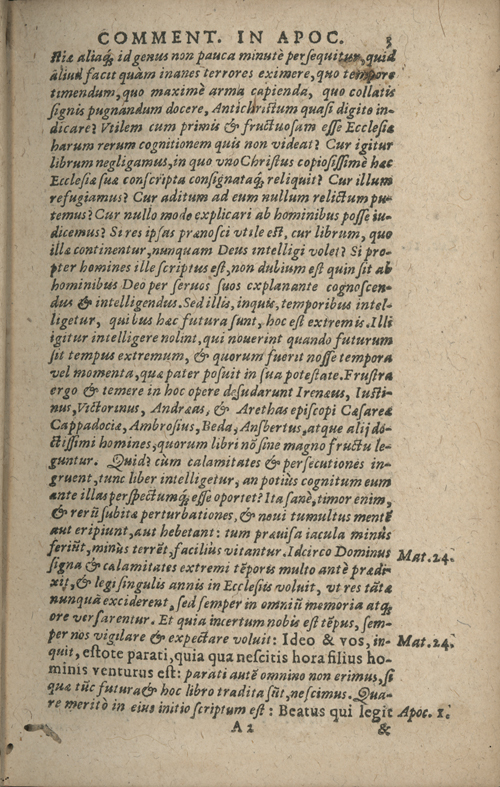 COMMENT. IN APOC. 3
stiæ aliaq́; id genus non pauca minutè persequitur, quid
aliud facit quàm inanes terrores eximere, quo tempore
timendum, quo maximè arma capienda, quo collatis
signis pugnandum docere, Antichristum quasi digito in-
dicare? Vtilem cum primis & fructuosam esse Ecclesiæ
harum rerum cognitionem quis non videat? Cur igitur
librum negligamus, in quo vno Christus copiosissimè hæc
Ecclesiæ suæ conscripta consignataq́; reliquit? Cur illum
refugiamus? Cur aditum ad eum nullum relictum pu-
temus? Cur nullo modo explicari ab hominibus posse iu-
dicemus? Si res ipsas prænosci vtile est, cur librum, quo
illæ continentur, nunquam Deus intelligi volet? Si pro-
pter homines ille scriptus est, non dubium est quin sit ab
hominibus Deo per seruos suos explanante cognoscen-
dus & intelligendus. Sed illis, inquis, temporibus intel-
ligetur, quibus hæc futura sunt, hoc est extremis. Illi
igitur intelligere nolint, qui nouerint quando futurum
sit tempus extremum, & quorum fuerit nosse tempora
vel momenta, quæ pater posuit in sua potestate. Frustra
ergo & temere in hoc opere desudarunt Irenæus, Iusti-
nus, Victorinus, Andræas, & Arethas episcopi Cæsareæ
Cappadociæ, Ambrosius, Beda, Ansbertus, atque alij do-
ctissimi homines, quorum libri nõ sine magno fructu le-
guntur. Quid? cùm calamitates & persecutiones in-
gruent, tunc liber intelligetur, an potiùs cognitum eum
ante illas perspectumq́; esse oportet? Ita sanè, timor enim,
& rerũ subitæ perturbationes, & noui tumultus mentẽ
aut eripiunt, aut hebetant: tum præuisa iacula minùs
feriũt, minùs terrẽt, facilius vitantur. Idcirco Dominus Mat. 24.
signa & calamitates extremi tẽporis multo antè prædi-
xit, & legi singulis annis in Ecclesiis voluit, vt res tãtæ
nunquã exciderent, sed semper in omniũ memoria atq́;
ore versarentur. Et quia incertum nobis est tẽpus, sem-
per nos vigilare & expectare voluit: Ideo & vos, in- Mat. 24.
quit, estote parati, quia qua nescitis hora filius ho-
minis venturus est: parati autẽ omnino non erimus, si
quæ tũc futura & hoc libro tradita sũt, nescimus. Qua-
re meritò in eius initio scriptum est: Beatus qui legit Apoc. 1.
A 2 &